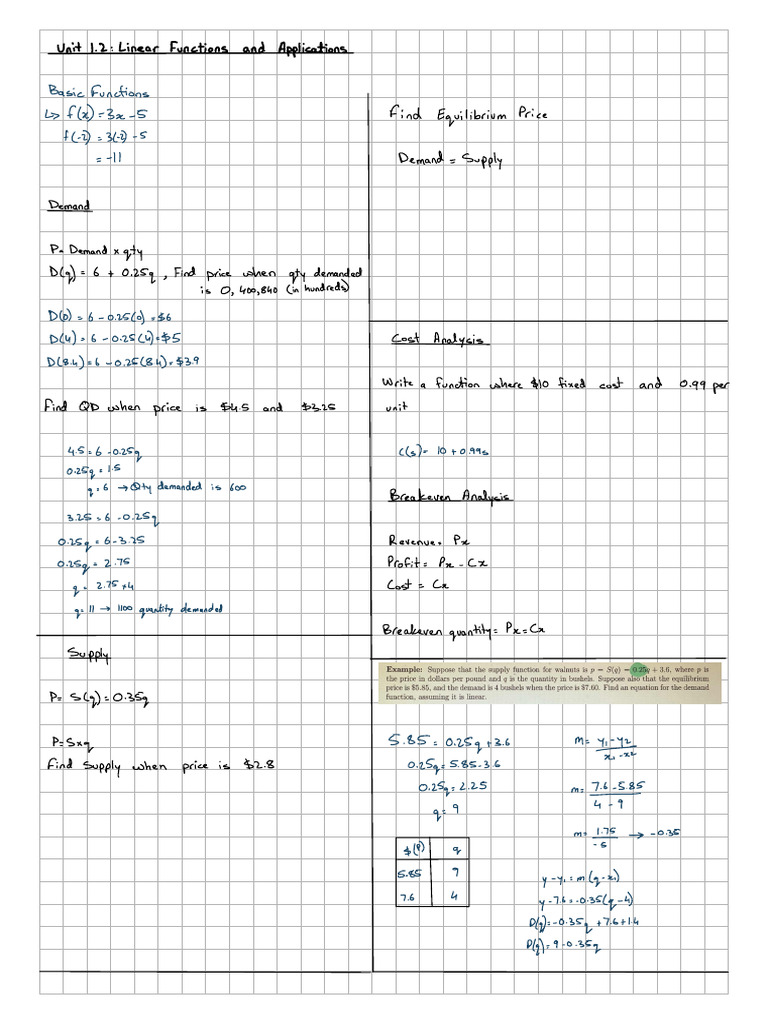 Unit 1.2: Linear Functions and Applications
Basic Functions
↳ f(x) = 3x - 5
f(-2) = 3(-2) - 5
= -11
Demand
P = Demand x qty
D(q) = 6 + 0.25q , Find price when qty demanded
is 0, 400, 840 (in hundreds)
D(0) = 6 - 0.25(0) = $6
D(4) = 6 - 0.25(4) = $5
D(8.4) = 6 - 0.25(8.4) = $3.9
Find QD when price is $4.5 and $3.25
4.5 = 6 - 0.25q
0.25q = 1.5
q = 6 → Qty demanded is 600
3.25 = 6 - 0.25q
0.25q = 6 - 3.25
0.25q = 2.75
q = 2.75 x 4
q = 11 → 1100 quantity demanded
Supply
P = S(q) = 0.35q
P = S x q
Find Supply when price is $2.8
Find Equilibrium Price
Demand = Supply
Cost Analysis
Write a function where $10 fixed cost and 0.99 per
unit
C(s) = 10 + 0.99s
Breakeven Analysis
Revenue = Px
Profit = Px - Cx
Cost = Cx
Breakeven quantity = Px = Cx
Example: Suppose that the supply function for walnuts is p = S(q) = 0.25q + 3.6, where p is
the price in dollars per pound and q is the quantity in bushels. Suppose also that the equilibrium
price is $5.85, and the demand is 4 bushels when the price is $7.60. Find an equation for the demand
function, assuming it is linear.
5.85 = 0.25q + 3.6
0.25q = 5.85 - 3.6
0.25q = 2.25
q = 9
$(P) q
5.85 9
7.6 4
m = y₁ - y₂
x₁ - x²
m = 7.6 - 5.85
4 - 9
m = 1.75 → -0.35
-5
y - y₁ = m(q - x₁)
y - 7.6 = -0.35(q - 4)
D(q) = -0.35q + 7.6 + 1.4
D(q) = 9 - 0.35q